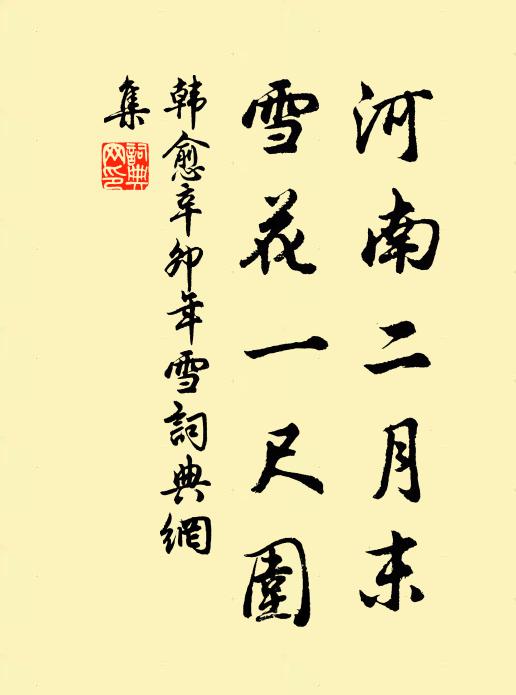 河南二月末
雪花一尺圍
韩愈辛卯年雪詞典網
集
詞典網印